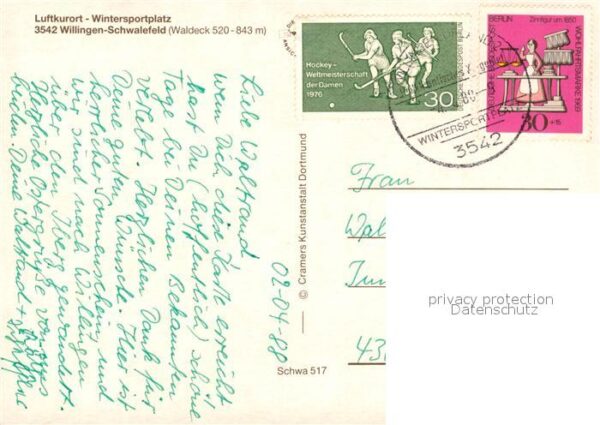 Luftkurort - Wintersportplatz
3542 Willingen-Schwalefeld (Waldeck 520 - 843 m)
Hockey-
Weltmeisterschaft
der Damen
1976
30
BERLIN
Zinnfigur um 1850
WOHLFAHRTSMARKE 1969
30 +15
WINTERSPORTPLATZ
3542
02-04-88
Liebe Waltraud
wenn Dich diese Karte erreicht
hast Du (hoffentlich) schöne
Tage bei Deinen Bekannten
verlebt. Herzlichen Dank für
Deine guten Wünsche. Hier ist
herrlicher Sonnenschein und
wir sind nach Willingen
über den Iberg gewandert.
Herzliche Ostergrüße von
Deine Waltraud +
© Cramers Kunstanstalt Dortmund
Schwa 517
Frau
Wal
43
privacy protection
Datenschutz